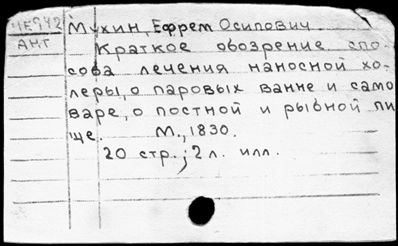 ЧЕ942 Мухин, Ефрем Осипович.
АНТ Краткое обозрение спо-
соба лечения наносной хо-
леры, о паровых ванне и само
варе, о постной и рыбной пи
ще. М., 1830.
20 стр.; 2 л. илл.